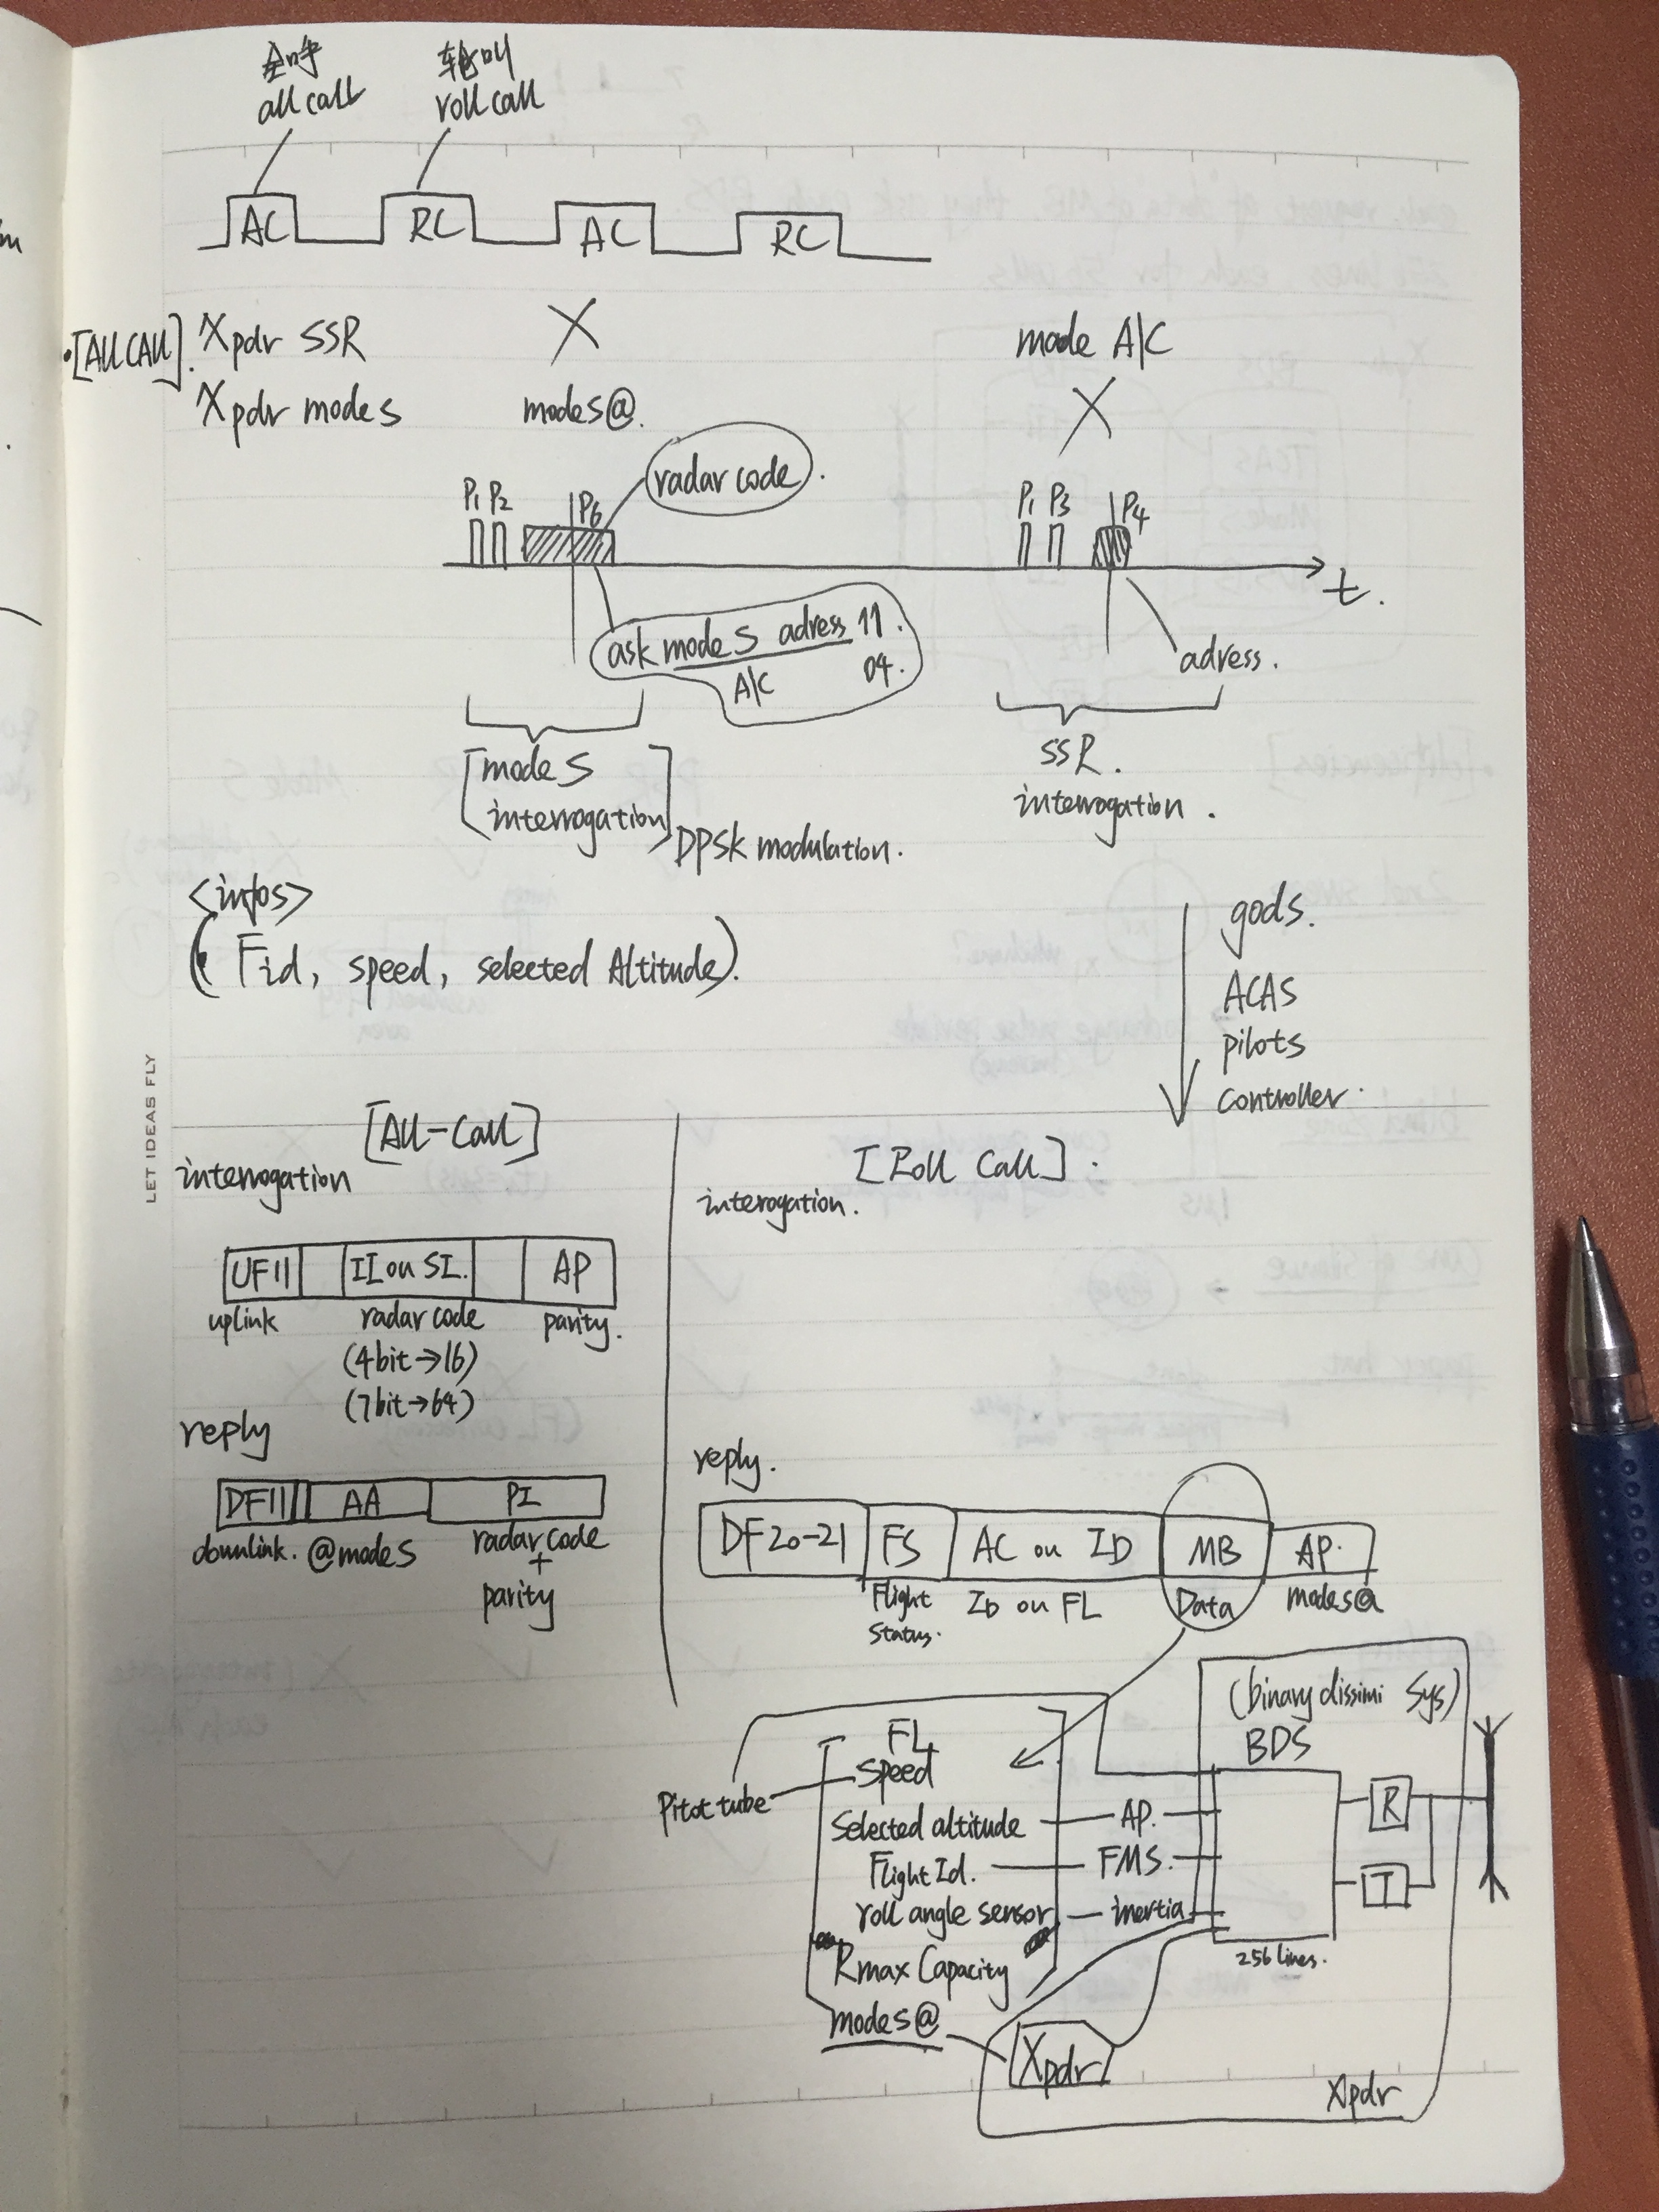 全呼 轮叫
all call roll call
AC RC AC RC
•[All CAll]. Xpdr SSR X mode A/C
Xpdr mode S mode S@. X
radar code.
P1 P2 P6 P1 P3 P4
t.
ask mode S adress 11.
A/C 04.
adress.
[mode S
interrogation]
DPSK modulation.
SSR.
interrogation.
<infos>
(Fid, speed, selected Altitude).
gods.
ACAS
pilots
controller.
LET IDEAS FLY
[All-Call]
interrogation
UF11 II ou SI. AP
uplink radar code parity.
(4bit→16)
(7bit→64)
reply
DF11 AA PI
downlink. @mode S radar code
+
parity
[Roll Call].
interogation.
reply.
DF20-21 FS AC ou ID MB AP.
Flight ID ou FL Data mode S@
Status.
(binary dissimi Sys)
BDS
FL
Speed
Pitot tube
Selected altitude AP.
Flight Id. FMS.
roll angle sensor inertia
Rmax Capacity
mode S@
R
T
256 lines.
Xpdr
Xpdr